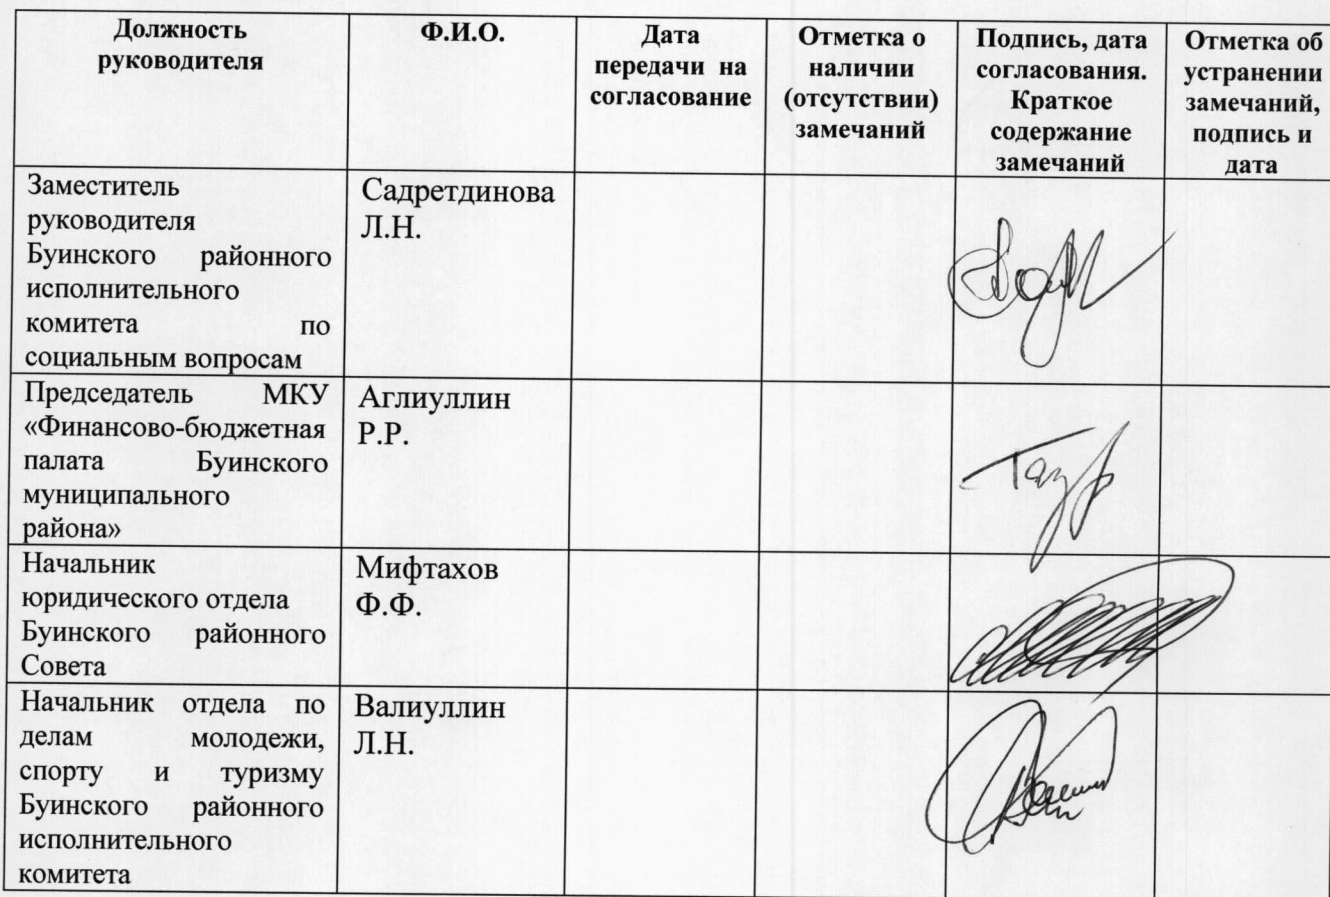 Должность
руководителя
Ф.И.О.
Дата
передачи на
согласование
Отметка о
наличии
(отсутствии)
замечаний
Подпись, дата
согласования.
Краткое
содержание
замечаний
Отметка об
устранении
замечаний,
подпись и
дата
Заместитель
руководителя
Буинского районного
исполнительного
комитета по
социальным вопросам
Садретдинова
Л.Н.
Председатель МКУ
«Финансово-бюджетная
палата Буинского
муниципального
района»
Аглиуллин
Р.Р.
Начальник
юридического отдела
Буинского районного
Совета
Мифтахов
Ф.Ф.
Начальник отдела по
делам молодежи,
спорту и туризму
Буинского районного
исполнительного
комитета
Валиуллин
Л.Н.